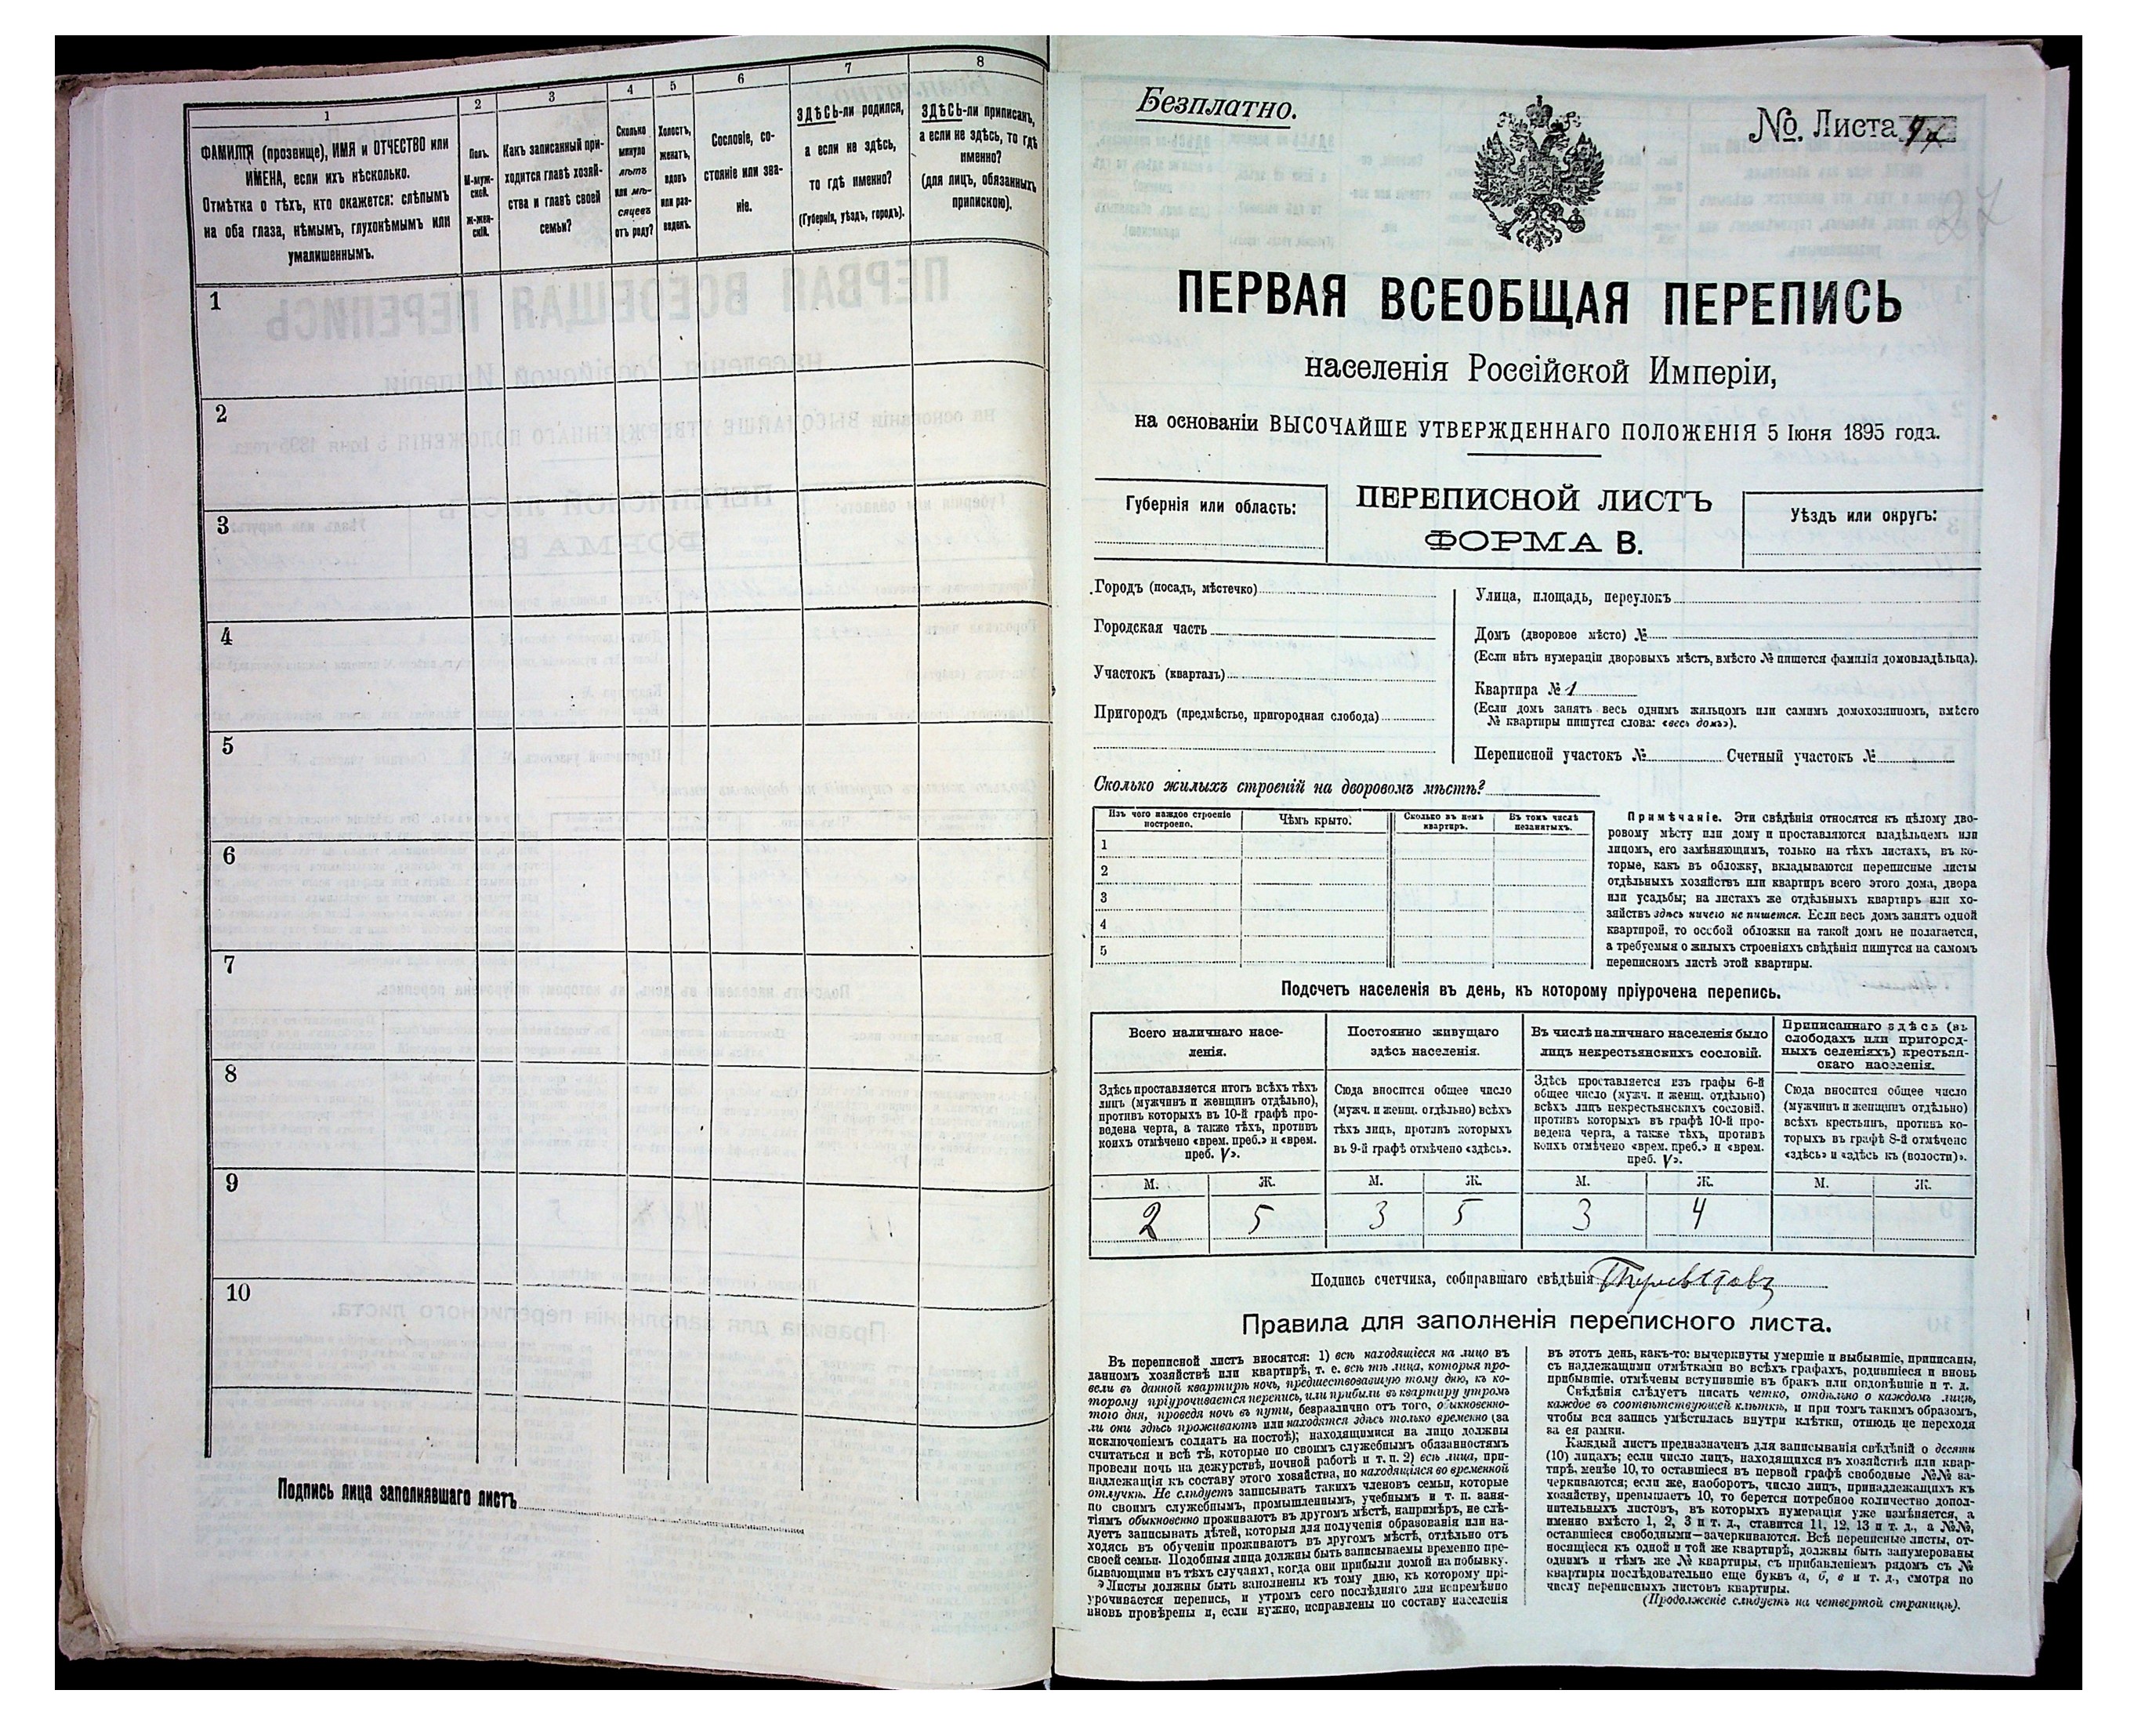 1
2
3
4
5
6
7
8
ФАМИЛІЯ (прозвище), ИМЯ и ОТЧЕСТВО или
ИМЕНА, если ихъ нѣсколько.
Отмѣтка о тѣхъ, кто окажется: слѣпымъ
на оба глаза, нѣмымъ, глухонѣмымъ или
умалишеннымъ.
Полъ.
М-муж-
ской.
Ж-жен-
скій.
Какъ записанный при-
ходится главѣ хозяй-
ства и главѣ своей
семьи?
Сколько
минуло
лѣтъ
или мѣ-
сяцевъ
отъ роду?
Холостъ,
женатъ,
вдовъ
или раз-
веденъ.
Сословіе, со-
стояніе или зва-
ніе.
ЗДѢСЬ-ли родился,
а если не здѣсь,
то гдѣ именно?
(Губернія, уѣздъ, городъ).
ЗДѢСЬ-ли приписанъ,
а если не здѣсь, то гдѣ
именно?
(для лицъ, обязанныхъ
припискою).
1
2
3
4
5
6
7
8
9
10
Подпись лица заполнявшаго листъ
Безплатно.
№. Листа
ПЕРВАЯ ВСЕОБЩАЯ ПЕРЕПИСЬ
населенія Россійской Имперіи,
на основаніи ВЫСОЧАЙШЕ УТВЕРЖДЕННАГО ПОЛОЖЕНІЯ 5 Іюня 1895 года.
Губернія или область:
ПЕРЕПИСНОЙ ЛИСТЪ
ФОРМА В.
Уѣздъ или округъ:
Городъ (посадъ, мѣстечко)
Городская часть
Участокъ (кварталъ)
Пригородъ (предмѣстье, пригородная слобода)
Улица, площадь, переулокъ
Домъ (дворовое мѣсто) №
(Если нѣтъ нумераціи дворовыхъ мѣстъ, вмѣсто № пишется фамилія домовладѣльца).
Квартира № 1
(Если домъ занятъ весь однимъ жильцомъ или самимъ домохозяиномъ, вмѣсто
№ квартиры пишутся слова: «весь домъ»).
Переписной участокъ № Счетный участокъ №
Сколько жилыхъ строеній на дворовомъ мѣстѣ?
Изъ чего каждое строеніе
построено.
Чѣмъ крыто.
Сколько въ немъ
квартиръ.
Въ томъ числѣ
незанятыхъ.
1
2
3
4
5
Примѣчаніе. Эти свѣдѣнія относятся къ цѣлому дво-
ровому мѣсту или дому и проставляются владѣльцемъ или
лицомъ, его замѣняющимъ, только на тѣхъ листахъ, въ ко-
торые, какъ въ обложку, вкладываются переписные листы
отдѣльныхъ хозяйствъ или квартиръ всего этого дома, двора
или усадьбы; на листахъ же отдѣльныхъ квартиръ или хо-
зяйствъ здѣсь ничего не пишется. Если весь домъ занятъ одной
квартирой, то особой обложки на такой домъ не полагается,
а требуемыя о жилыхъ строеніяхъ свѣдѣнія пишутся на самомъ
переписномъ листѣ этой квартиры.
Подсчетъ населенія въ день, къ которому пріурочена перепись.
Всего наличнаго насе-
ленія.
Здѣсь проставляется итогъ всѣхъ тѣхъ
лицъ (мужчинъ и женщинъ отдѣльно),
противъ которыхъ въ 10-й графѣ про-
ведена черта, а также тѣхъ, противъ
коихъ отмѣчено «врем. преб.» и «врем.
преб. V».
Постоянно живущаго
здѣсь населенія.
Сюда вносится общее число
(мужч. и женщ. отдѣльно) всѣхъ
тѣхъ лицъ, противъ которыхъ
въ 9-й графѣ отмѣчено «здѣсь».
Въ числѣ наличнаго населенія было
лицъ некрестьянскихъ сословій.
Здѣсь проставляется изъ графы 6-й
общее число (мужч. и женщ. отдѣльно)
всѣхъ лицъ некрестьянскихъ сословій,
противъ которыхъ въ графѣ 10-й про-
ведена черта, а также тѣхъ, противъ
коихъ отмѣчено «врем. преб.» и «врем.
преб. V».
Приписаннаго здѣсь (въ
слободахъ или пригород-
ныхъ селеніяхъ) крестьян-
скаго населенія.
Сюда вносится общее число
(мужчинъ и женщинъ отдѣльно)
всѣхъ крестьянъ, противъ ко-
торыхъ въ графѣ 8-й отмѣчено
«здѣсь» и «здѣсь къ (волости)».
М. Ж. М. Ж. М. Ж. М. Ж.
2 5 3 5 3 4
Подпись счетчика, собиравшаго свѣдѣнія
Правила для заполненія переписного листа.
Въ переписной листъ вносятся: 1) всѣ находящіеся на лицо въ
данномъ хозяйствѣ или квартирѣ, т. е. всѣ тѣ лица, которыя про-
вели въ данной квартирѣ ночь, предшествовавшую тому дню, къ ко-
торому пріурочивается перепись, или прибыли въ квартиру утромъ
того дня, проведя ночь въ пути, безразлично отъ того, обыкновенно-
ли они здѣсь проживаютъ или находятся здѣсь только временно (за
исключеніемъ солдатъ на постоѣ); находящимися на лицо должны
считаться и всѣ тѣ, которые по своимъ служебнымъ обязанностямъ
провели ночь на дежурствѣ, ночной работѣ и т. п. 2) всѣ лица, при-
надлежащія къ составу этого хозяйства, но находящіяся во временной
отлучкѣ. Не слѣдуетъ записывать такихъ членовъ семьи, которые
по своимъ служебнымъ, промышленнымъ, учебнымъ и т. п. заня-
тіямъ обыкновенно проживаютъ въ другомъ мѣстѣ, напримѣръ, не слѣ-
дуетъ записывать дѣтей, которыя для полученія образованія или на-
ходясь въ обученіи проживаютъ въ другомъ мѣстѣ, отдѣльно отъ
своей семьи. Подобныя лица должны быть записываемы временно пре-
бывающими въ тѣхъ случаяхъ, когда они прибыли домой на побывку.
Листы должны быть заполнены къ тому дню, къ которому прі-
урочивается перепись, и утромъ сего послѣдняго дня непремѣнно
вновь провѣрены и, если нужно, исправлены по составу населенія
въ этотъ день, какъ-то: вычеркнуты умершіе и выбывшіе, приписаны,
съ надлежащими отмѣтками во всѣхъ графахъ, родившіеся и вновь
прибывшіе, отмѣчены вступившіе въ бракъ или овдовѣвшіе и т. д.
Свѣдѣнія слѣдуетъ писать четко, отдѣльно о каждомъ лицѣ,
каждое въ соотвѣтствующей клѣткѣ, и при томъ такимъ образомъ,
чтобы вся запись умѣстилась внутри клѣтки, отнюдь не переходя
за ея рамки.
Каждый листъ предназначенъ для записыванія свѣдѣній о десяти
(10) лицахъ; если число лицъ, находящихся въ хозяйствѣ или квар-
тирѣ, менѣе 10, то оставшіеся въ первой графѣ свободные №№ за-
черкиваются; если же, наоборотъ, число лицъ, принадлежащихъ къ
хозяйству, превышаетъ 10, то берется потребное количество допол-
нительныхъ листовъ, въ которыхъ нумерація уже измѣняется, а
именно вмѣсто 1, 2, 3 и т. д., ставится 11, 12, 13 и т. д., а №№,
оставшіеся свободными—зачеркиваются. Всѣ переписные листы, от-
носящіеся къ одной и той же квартирѣ, должны быть занумерованы
однимъ и тѣмъ же № квартиры, съ прибавленіемъ рядомъ съ №
квартиры послѣдовательно еще буквъ а, б, в и т. д., смотря по
числу переписныхъ листовъ квартиры.
(Продолженіе слѣдуетъ на четвертой страницѣ).